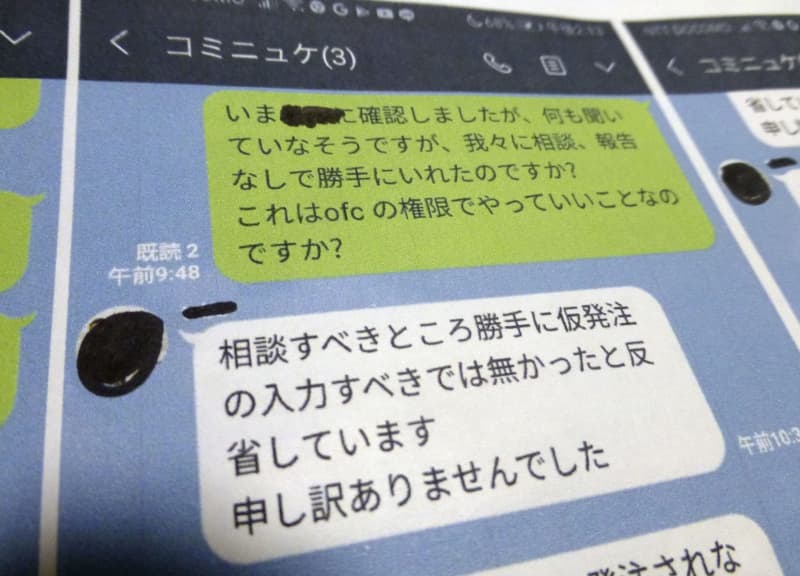 68% 午後2:13
コミニュケ(3)
いま に確認しましたが、何も聞い
ていなそうですが、我々に相談、報告
なしで勝手にいれたのですか?
これはofc の権限でやっていいことなの
ですか?
既読 2
午前9:48
相談すべきところ勝手に仮発注
の入力すべきでは無かったと反
省しています
申し訳ありませんでした
午前10:3
発注されな
NTT DOCOMO
コミニュケ
省して
申し